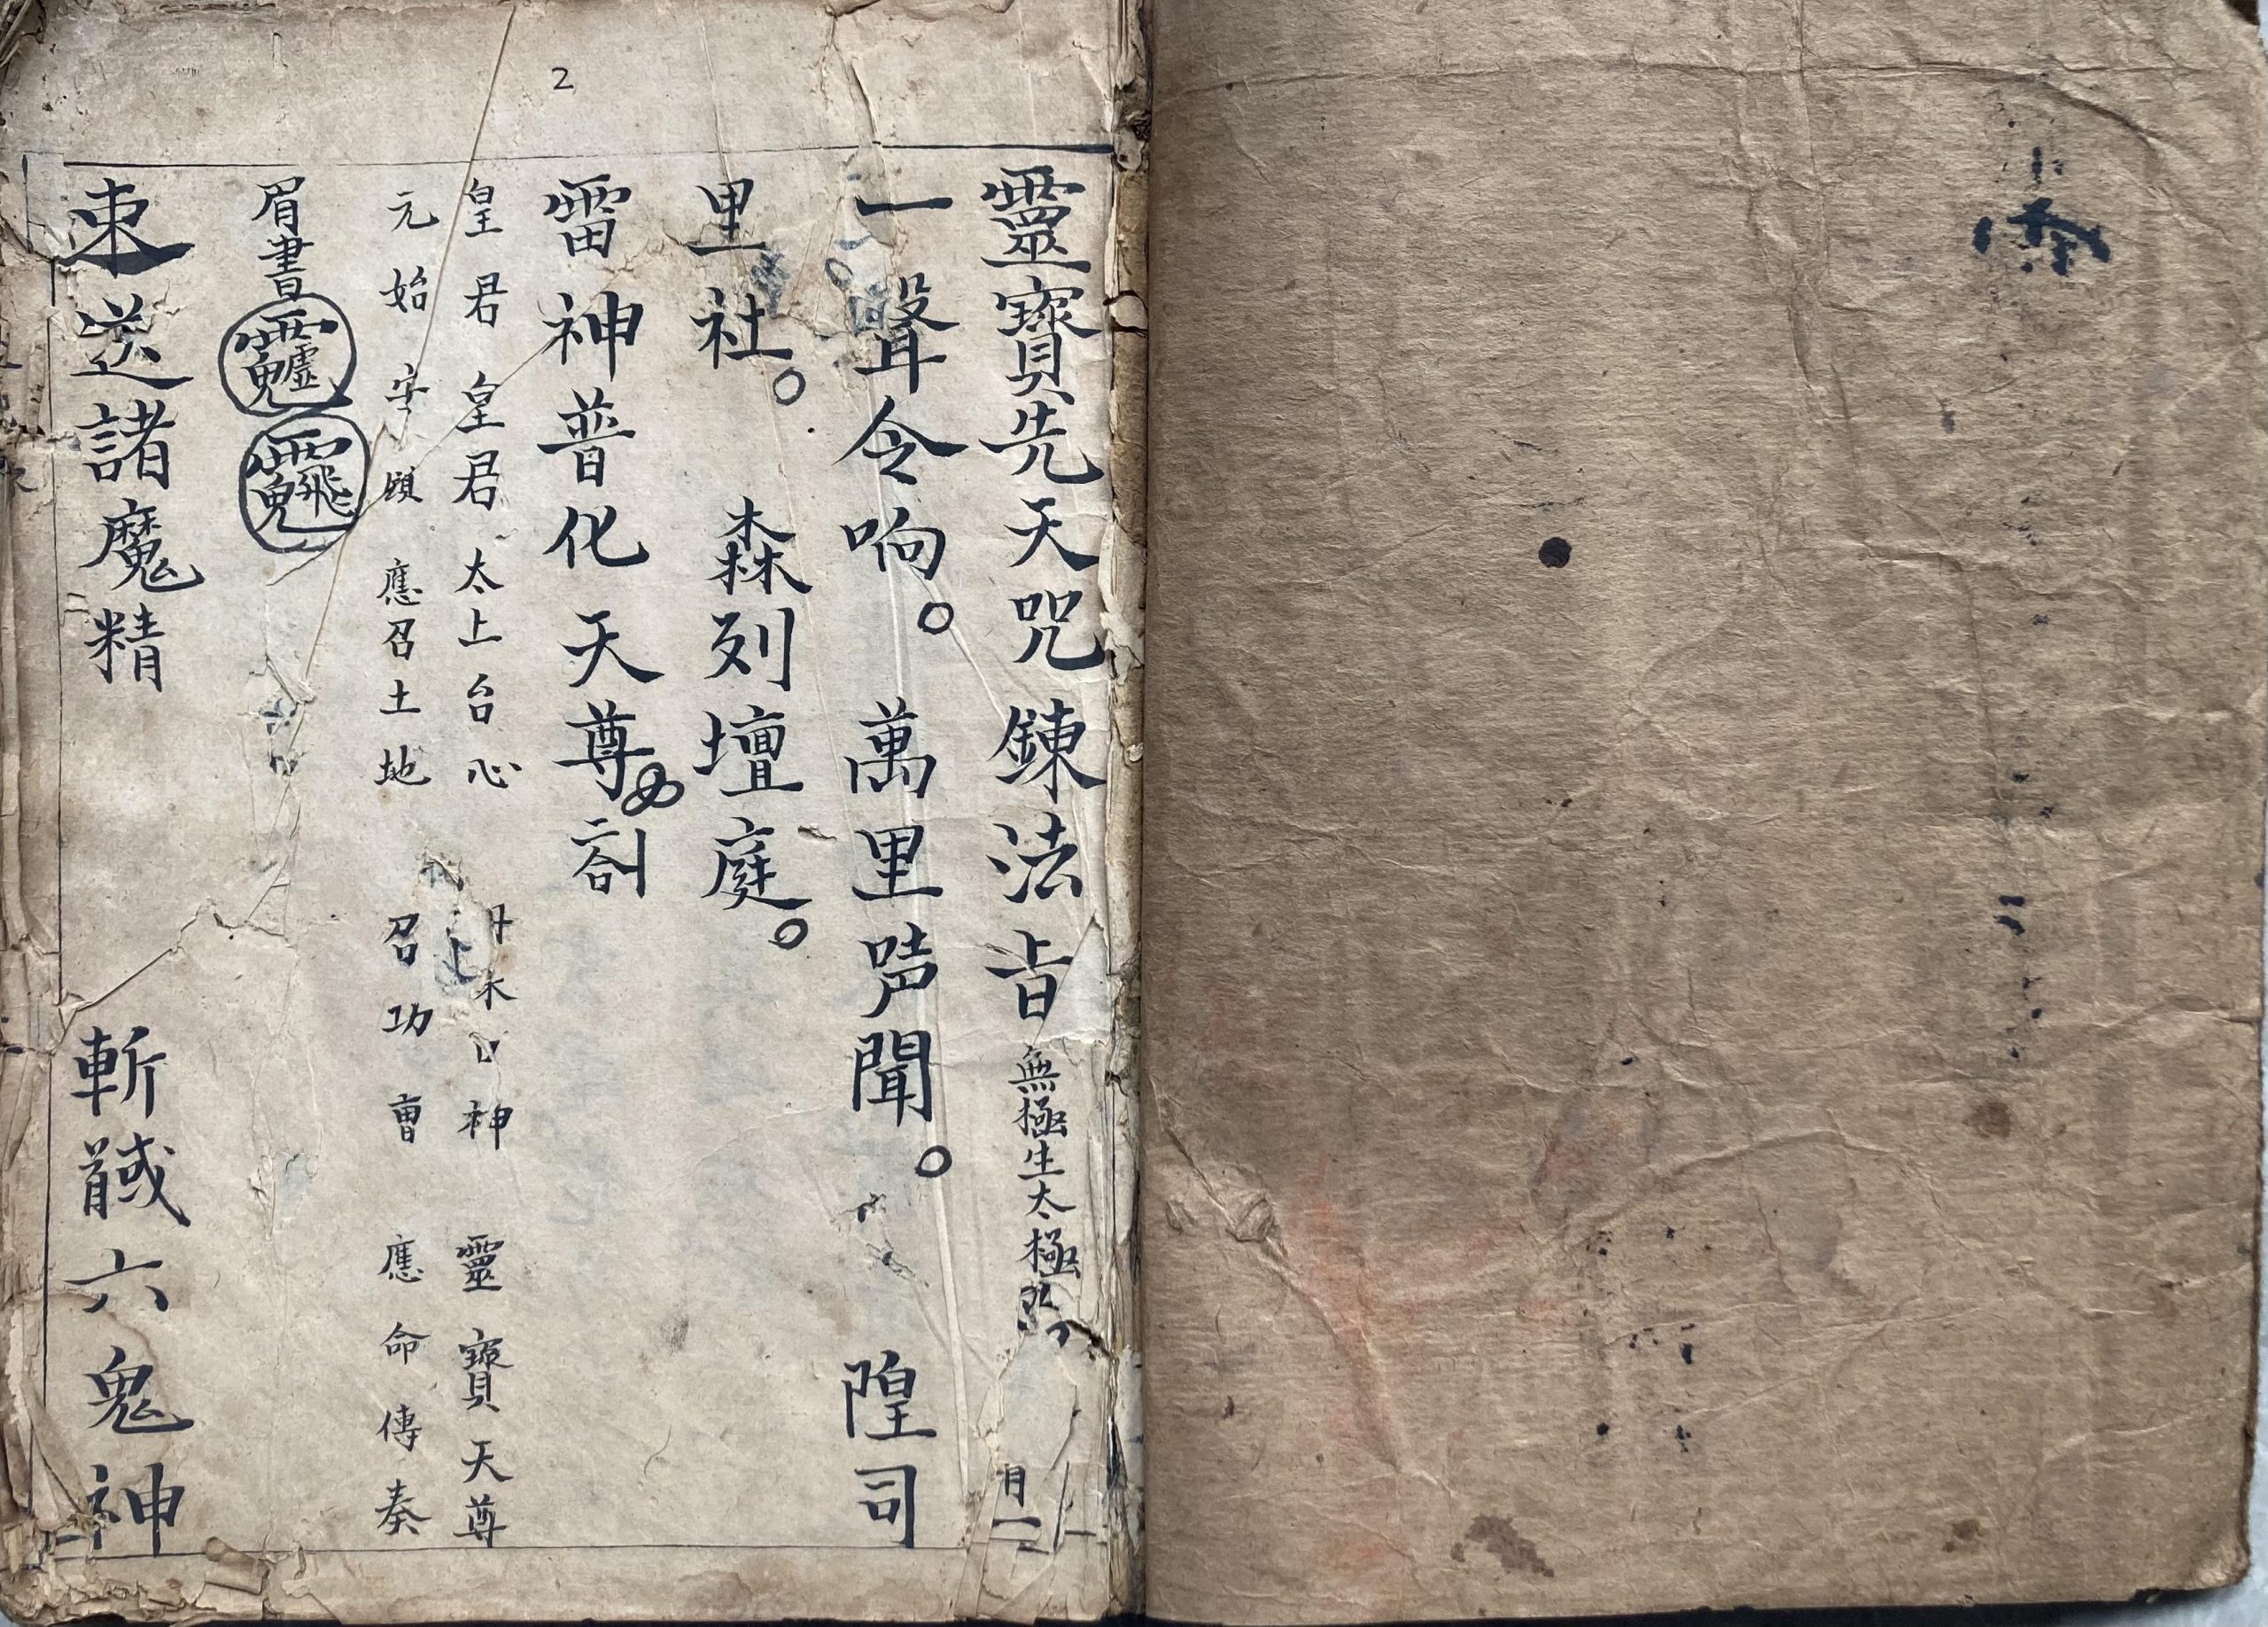 2
靈寶先天咒鍊法旨 無極生太極 月
一聲令响。萬里哠聞。隍司
里社。森列壇庭。
雷神普化天尊
皇君皇君太上台心 神 靈寶天尊
元始安頣應召土地 召功曹 應命傳奏
眉書
束送諸魔精 斬馘六鬼神